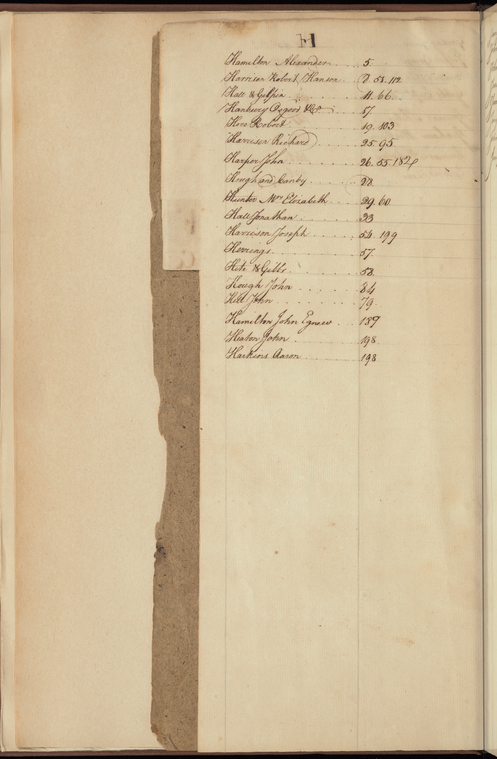 H
Hamilton Alexander . . . 5
Harrison Robert Hanson . . 7. 51. 112
Hall & Gilpin . . . 11. 66.
Hanbury Osgood & Co . . 17.
Hooe Robert . . . 19. 103
Harrison Richard . . . 25. 95
Harper John . . . 26. 55. 182
Hough and Canby . . .
Hunter Mrs Elizabeth . . . 29. 60
Hall Jonathan . . . 33
Harrison Joseph . . . 54. 199
Herrings . . . 57.
Hite & Gibbs . . . 58.
Hough John . . . 84
Hill John . . . 79
Hamilton John Agnew . . 137
Heaton John . . . 198
Harkins Aaron . . . 198